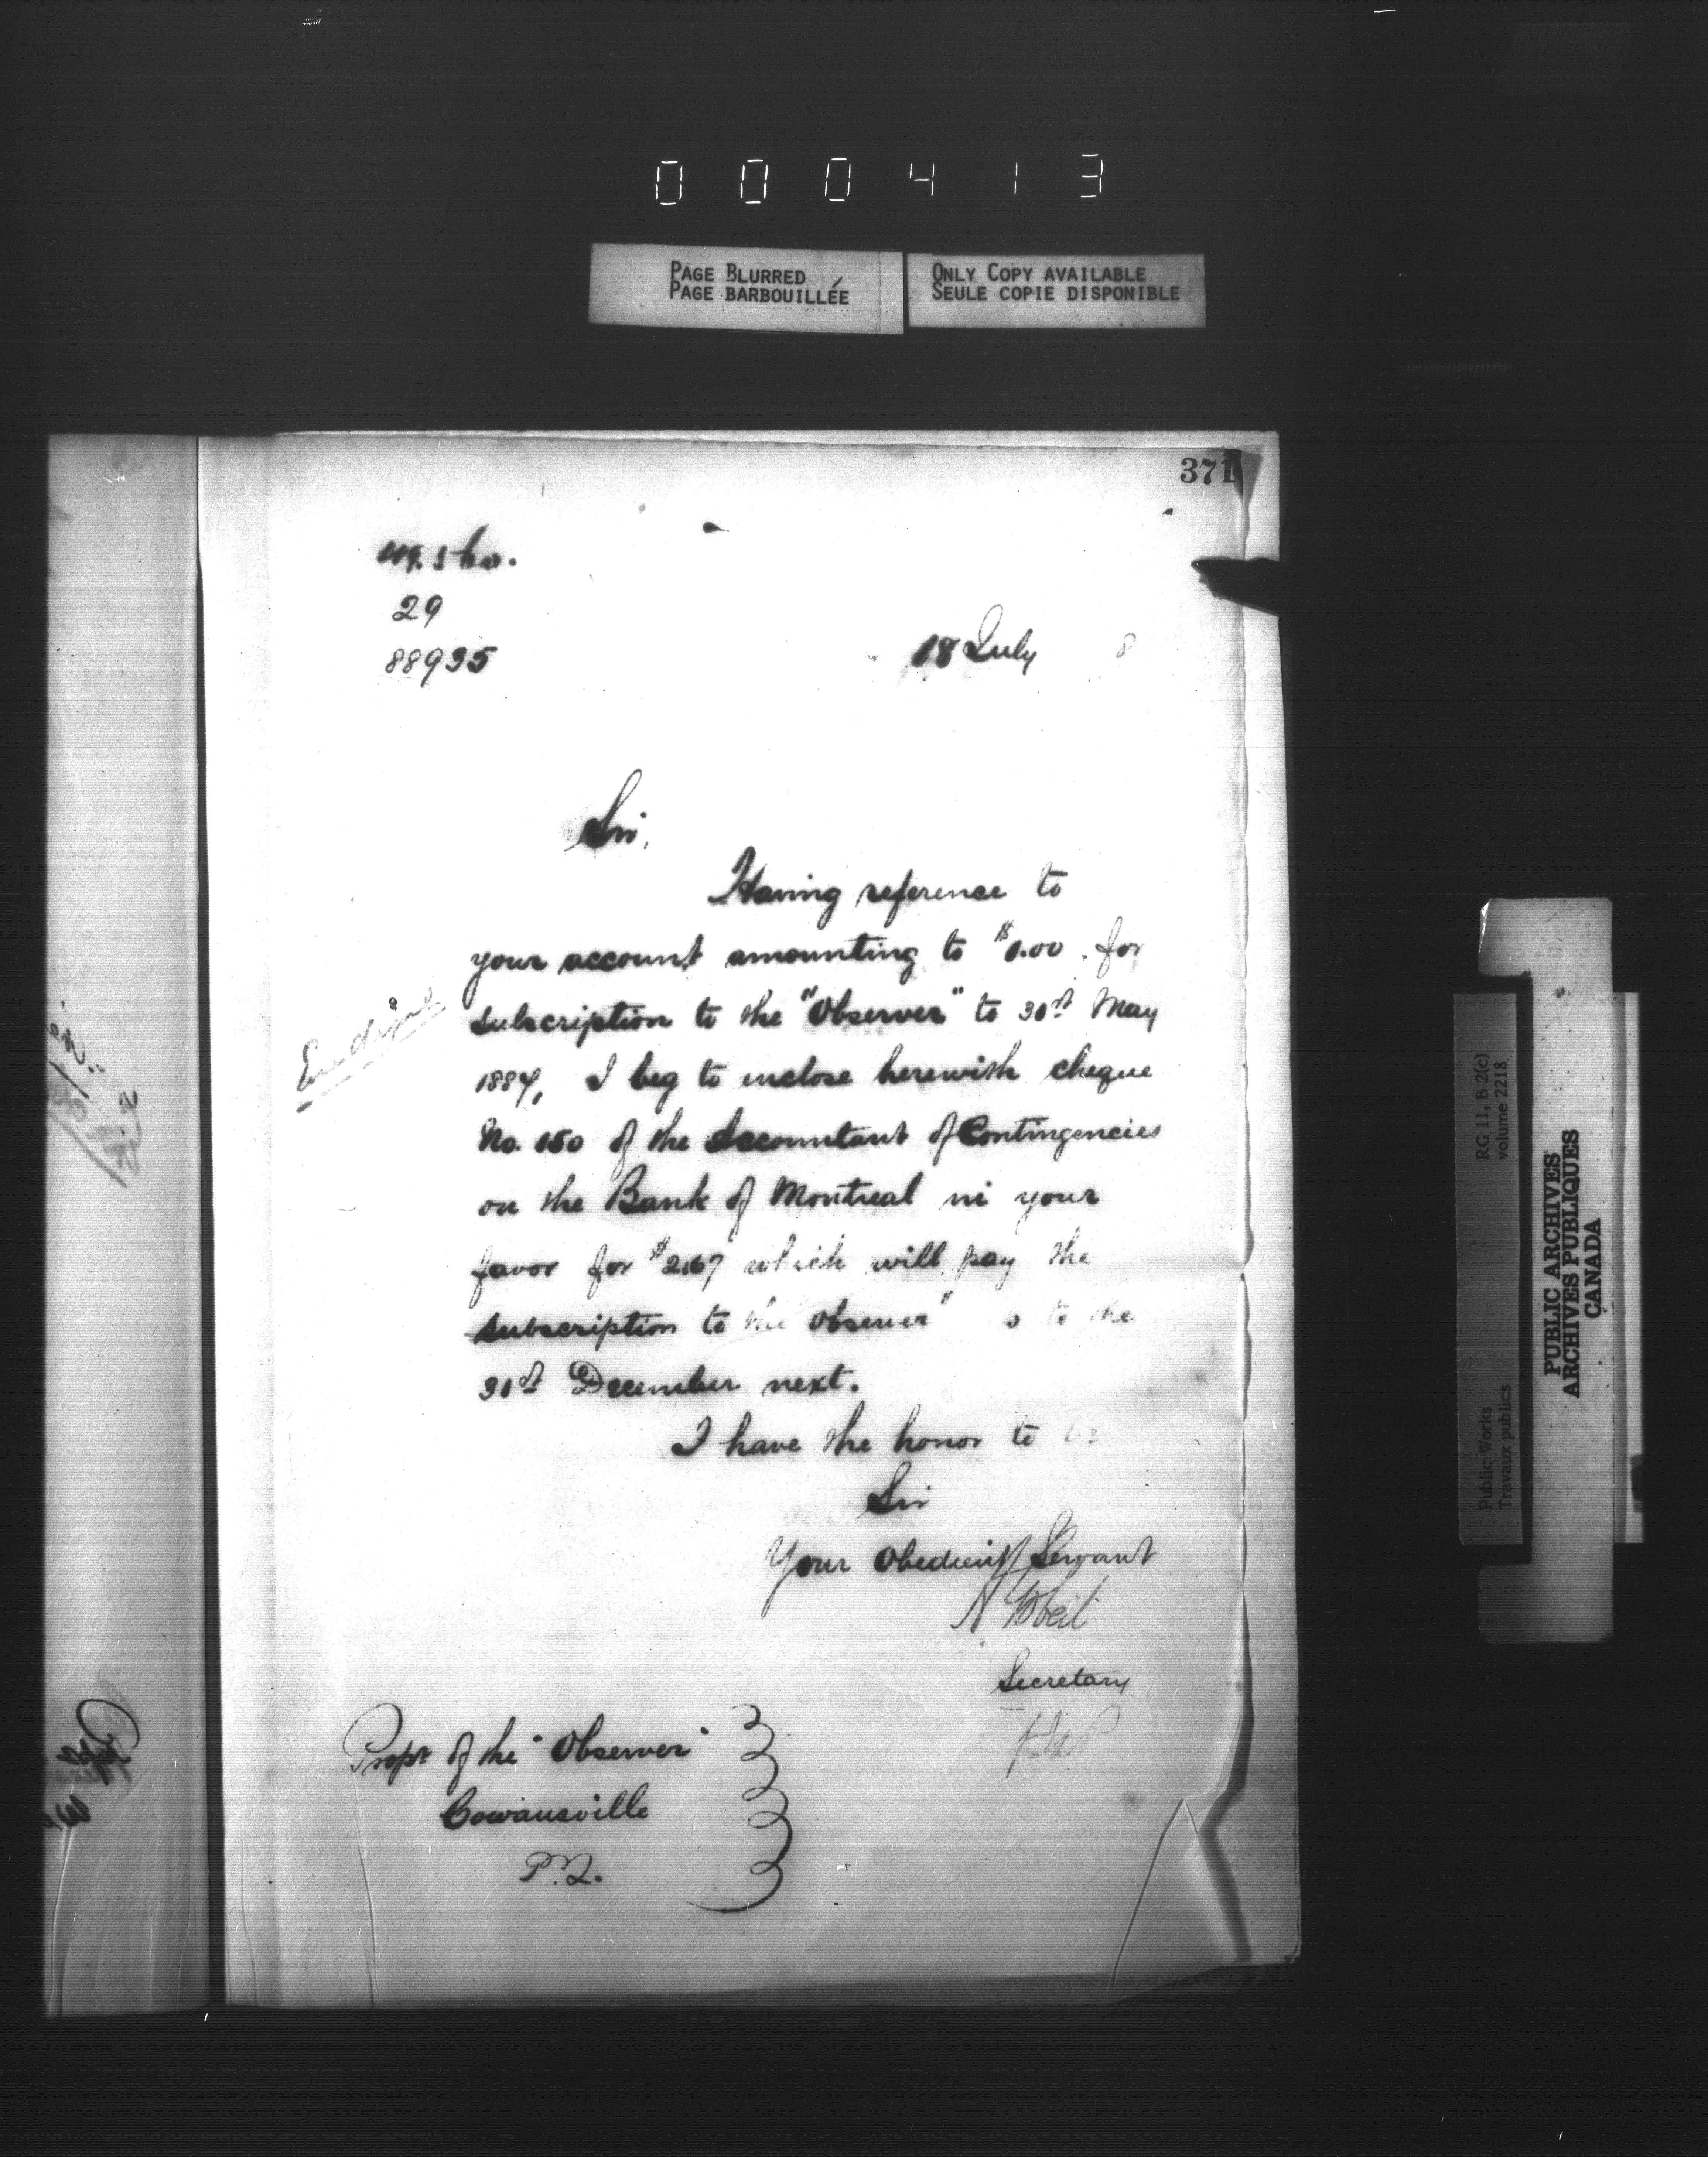 000413
PAGE BLURRED
PAGE BARBOUILLÉE
ONLY COPY AVAILABLE
SEULE COPIE DISPONIBLE
371
29
88935
18 July 8
Sir,
Having reference to
your account amounting to $1.00 for
subscription to the "Observer" to 30st May
1884, I beg to inclose herewith cheque
No. 150 of the Accountant of Contingencies
on the Bank of Montreal in your
favor for $2.67 which will pay the
subscription to the Observer" to the
31st December next.
I have the honor to be
Sir
Your Obedient Servant
A Gobeil
Secretary
Propr of the "Observer"
Cowansville
P.Q.
RG 11, B 2(c)
volume 2218
Public Works
Travaux publics
PUBLIC ARCHIVES
ARCHIVES PUBLIQUES
CANADA